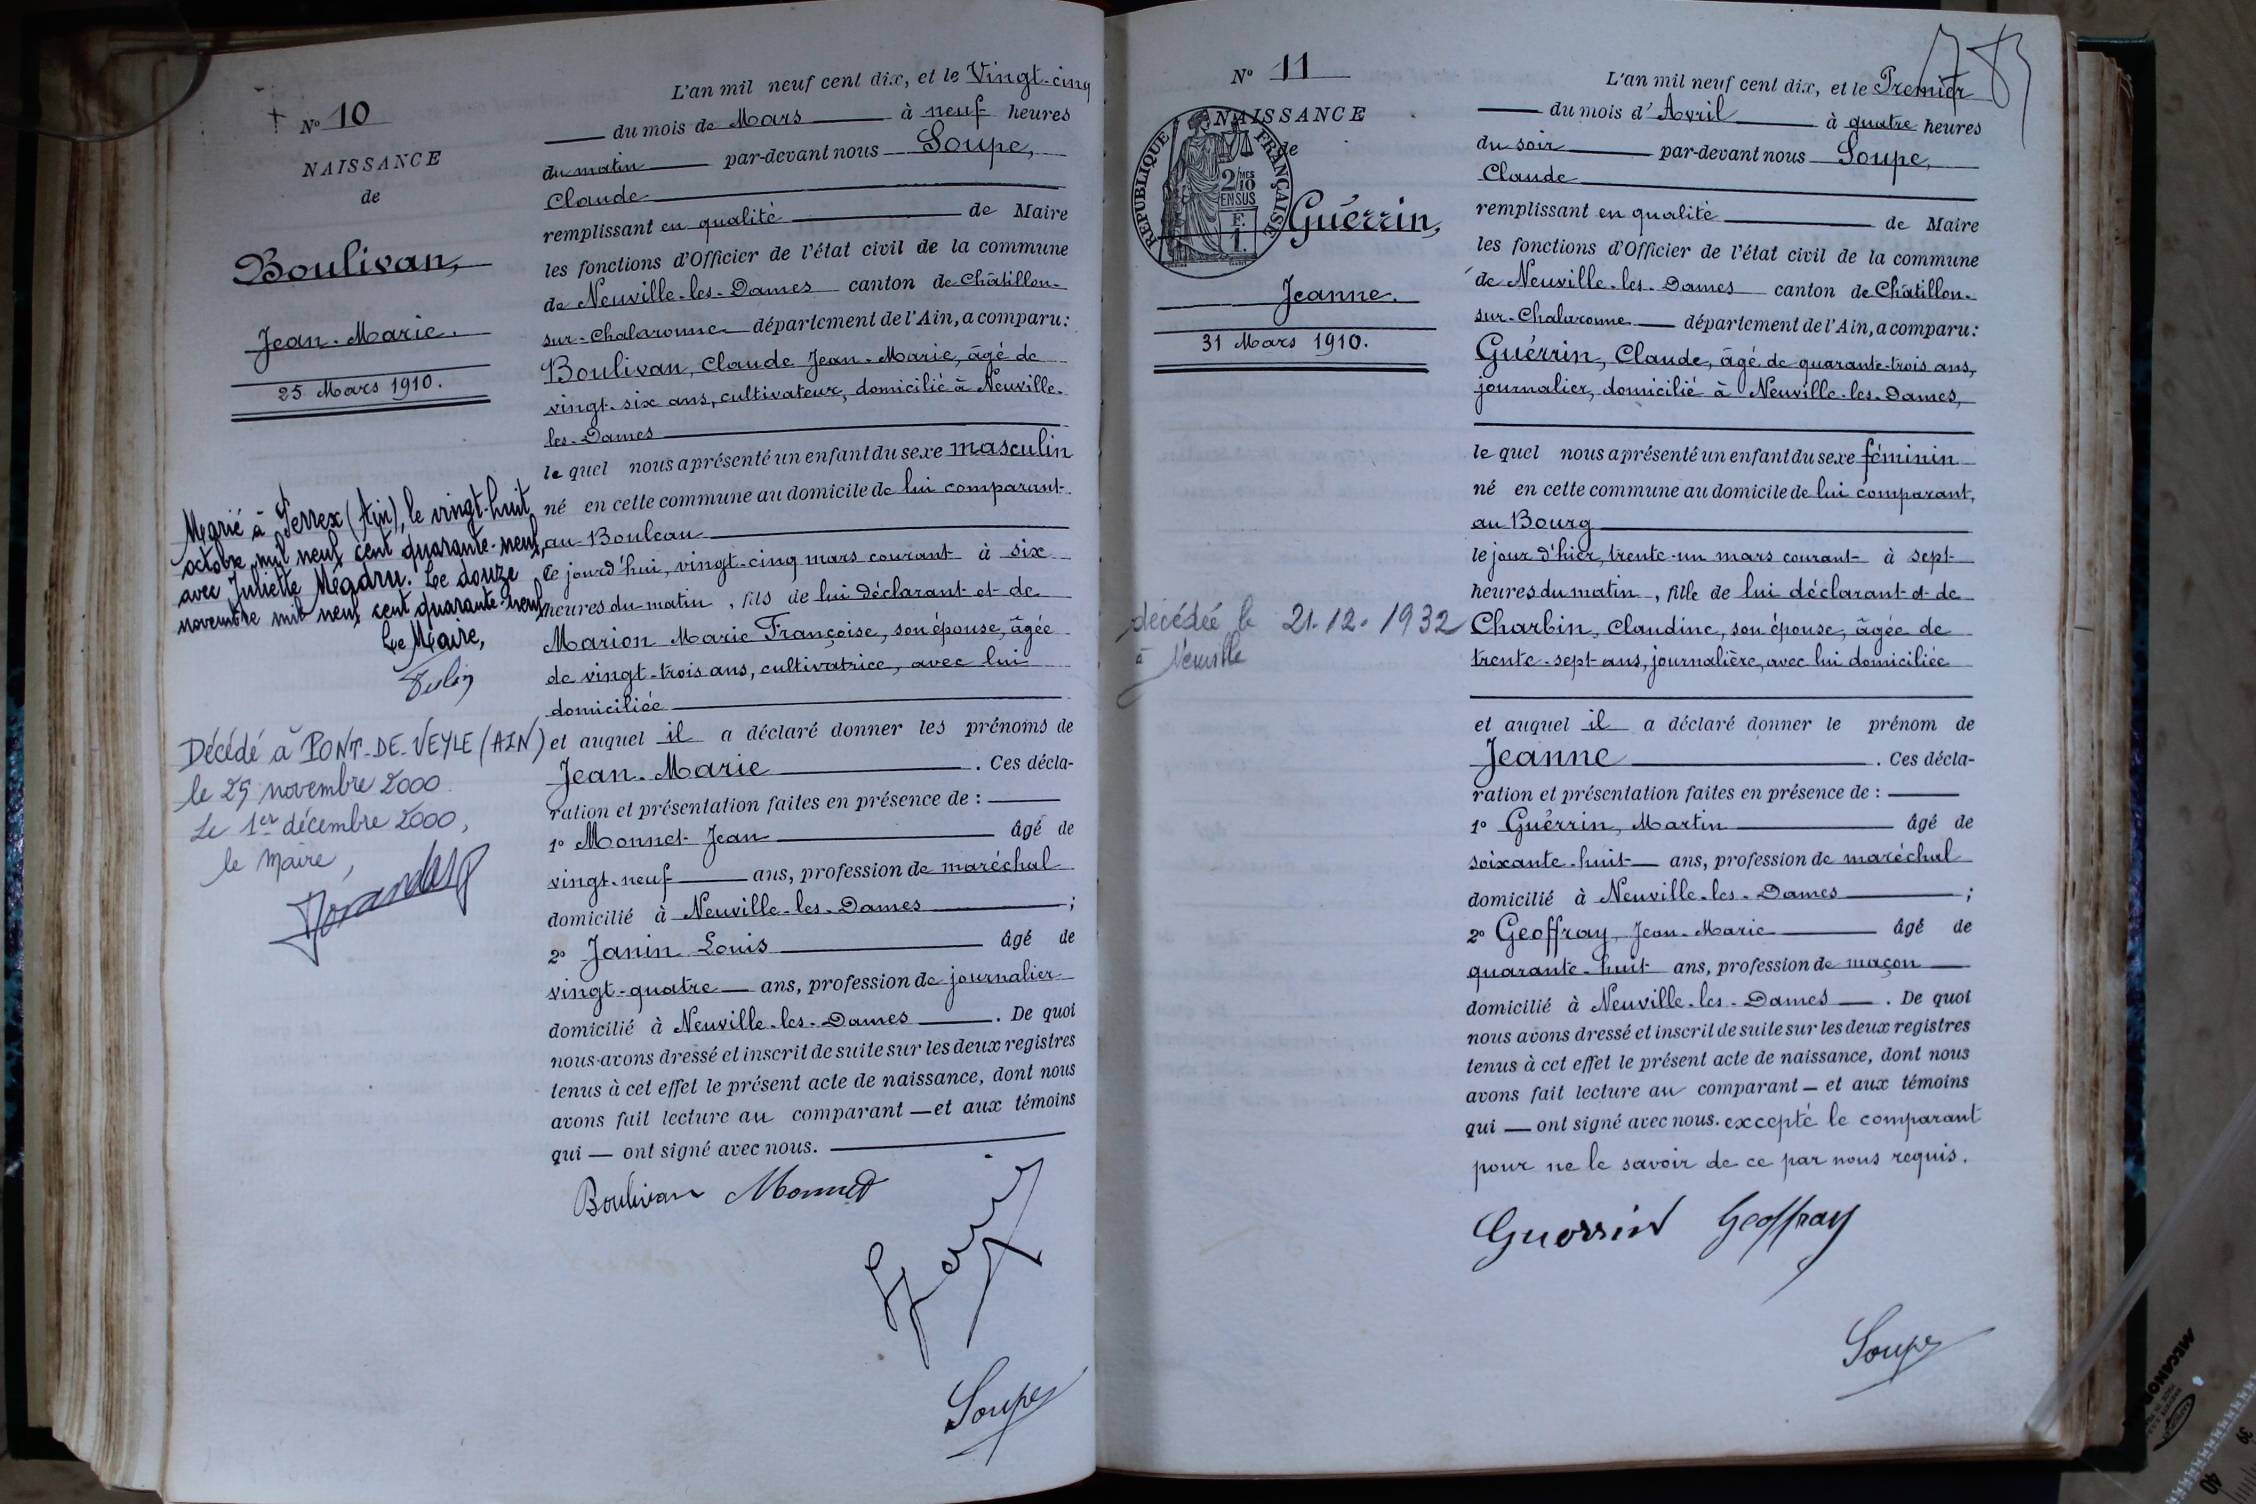 † N° 10
NAISSANCE
de
Boulivan,
Jean-Marie.
25 Mars 1910.
Marié à Perrex (Ain), le vingt-huit
octobre mil neuf cent quarante-neuf,
avec Juliette Mégard. Le douze
novembre mil neuf cent quarante-neuf
Le Maire,
Décédé à PONT-DE-VEYLE (AIN)
le 29 novembre 2000.
Le 1er décembre 2000,
le Maire,
L'an mil neuf cent dix, et le Vingt-cinq
du mois de Mars à neuf heures
du matin par-devant nous Soupe,
Claude
remplissant en qualité de Maire
les fonctions d'Officier de l'état civil de la commune
de Neuville-les-Dames canton de Châtillon-
sur-Chalaronne département de l'Ain, a comparu :
Boulivan, Claude Jean-Marie, âgé de
vingt-six ans, cultivateur, domicilié à Neuville-
les-Dames
le quel nous a présenté un enfant du sexe masculin
né en cette commune au domicile de lui comparant
au Bouleau
Ce jourd'hui, vingt-cinq mars courant à six
heures du matin, fils de lui déclarant et de
Marion Marie Françoise, son épouse, âgée
de vingt-trois ans, cultivatrice, avec lui
domiciliée
et auquel il a déclaré donner les prénoms de
Jean-Marie. Ces décla-
ration et présentation faites en présence de :
1° Monnet Jean âgé de
vingt-neuf ans, profession de maréchal
domicilié à Neuville-les-Dames ;
2° Janin Louis âgé de
vingt-quatre ans, profession de journalier
domicilié à Neuville-les-Dames. De quoi
nous avons dressé et inscrit de suite sur les deux registres
tenus à cet effet le présent acte de naissance, dont nous
avons fait lecture au comparant — et aux témoins
qui — ont signé avec nous.
Boulivan Monnet
Soupe
N° 11
NAISSANCE
de
RÉPUBLIQUE FRANÇAISE
2/10MES
EN SUS
F.
1.
Guérrin,
Jeanne.
31 Mars 1910.
décédée le 21-12-1932
à Neuville
783
L'an mil neuf cent dix, et le Premier
du mois d'Avril à quatre heures
du soir par-devant nous Soupe,
Claude
remplissant en qualité de Maire
les fonctions d'Officier de l'état civil de la commune
de Neuville-les-Dames canton de Châtillon-
sur-Chalaronne département de l'Ain, a comparu :
Guérrin, Claude, âgé de quarante-trois ans,
journalier, domicilié à Neuville-les-Dames,
le quel nous a présenté un enfant du sexe féminin
né en cette commune au domicile de lui comparant,
au Bourg
le jour d'hier, trente-un mars courant à sept
heures du matin, fille de lui déclarant et de
Charbin, Claudine, son épouse, âgée de
trente-sept ans, journalière, avec lui domiciliée
et auquel il a déclaré donner le prénom de
Jeanne. Ces décla-
ration et présentation faites en présence de :
1° Guérrin, Martin âgé de
soixante-huit ans, profession de maréchal
domicilié à Neuville-les-Dames ;
2° Geoffray, Jean-Marie âgé de
quarante-huit ans, profession de maçon
domicilié à Neuville-les-Dames. De quoi
nous avons dressé et inscrit de suite sur les deux registres
tenus à cet effet le présent acte de naissance, dont nous
avons fait lecture au comparant — et aux témoins
qui — ont signé avec nous. excepté le comparant
pour ne le savoir de ce par nous requis.
Guerrin Geoffray
Soupe